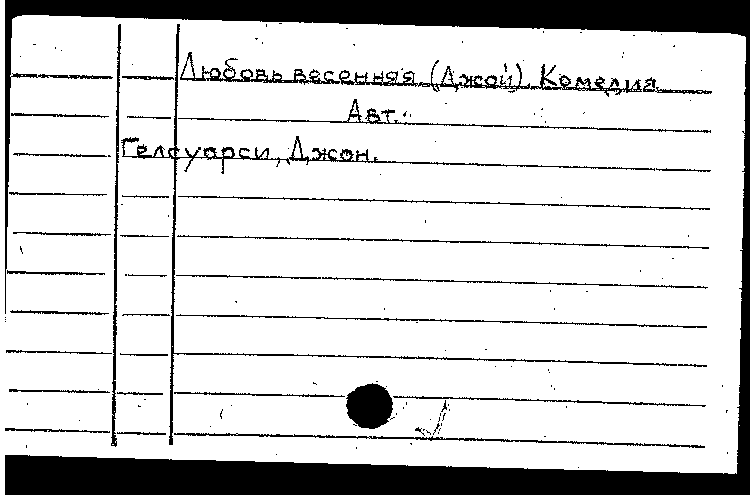 Любовь весенняя (Джой). Комедия
Авт.:
Гелсуорси, Джон.